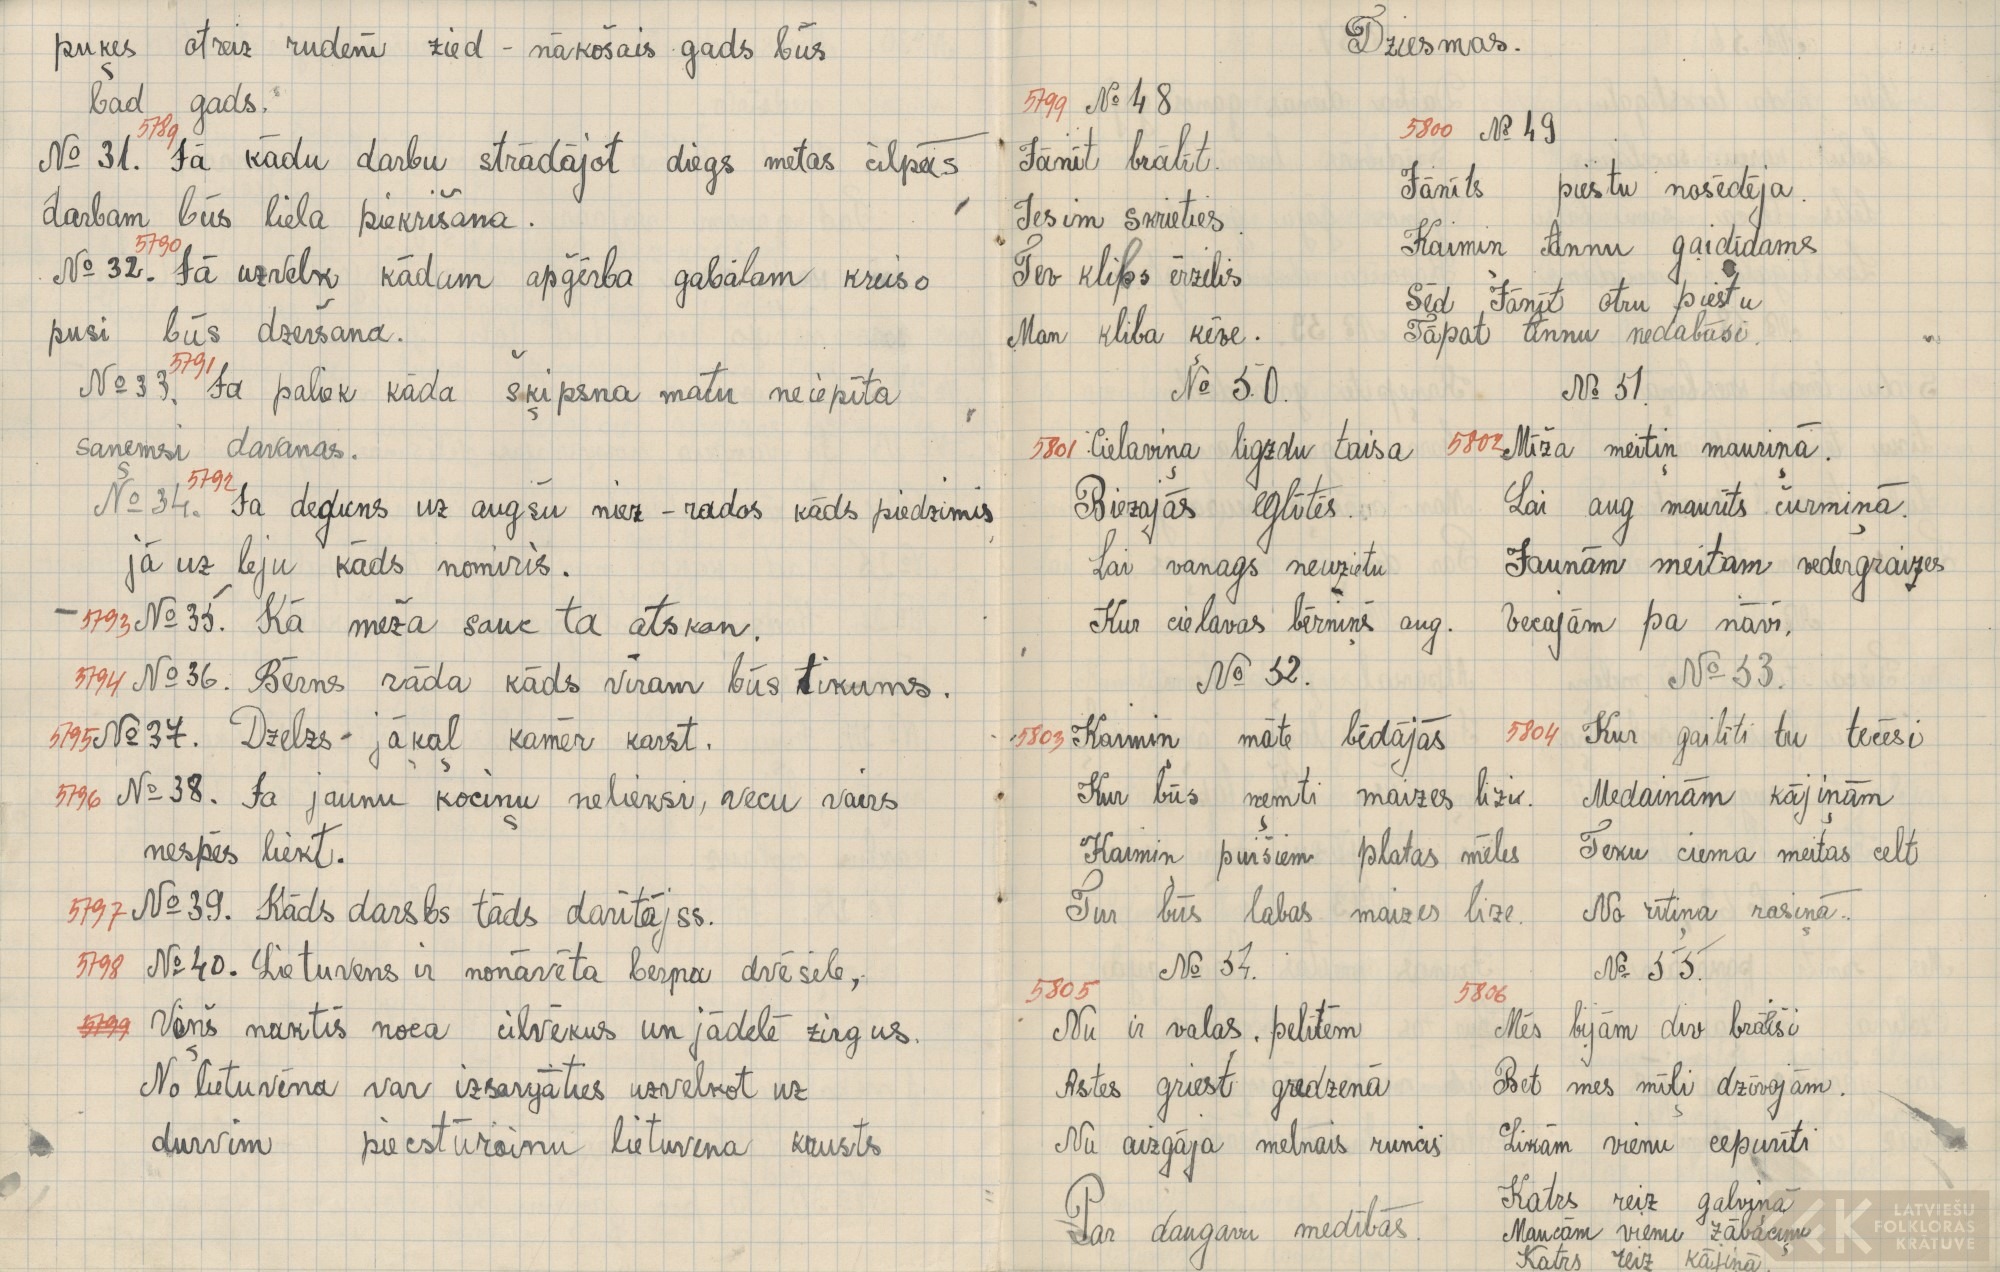 puķes otreiz rudenī zied - nākošais gads būs
bad gads.
5789
No 31. Jā kādu darbu strādājot diegs metas cilpās
darbam būs liela piekrišana.
5790
No 32. Jā uzvelk kādam apģērba gabalam kreiso
pusi būs dzeršana.
5791
No 33. Ja paliek kāda šķipsna matu neiepīta
saņemsi davanas.
5792
No 34. Ja deguns uz augšu niez - rados kāds piedzimis
jā uz leju kāds nomiris.
5793 No 35. Kā meža sauc tā atskan.
5794 No 36. Bērns rāda kāds vīram būs tikums.
5795 No 37. Dzelzs - jākaļ kamēr karst.
5796 No 38. Ja jaunu kociņu nelieksi, vecu vairs
nespēs liekt.
5797 No 39. Kāds darbs tāds darītājs.
5798 No 40. Lietuvens ir nonāvēta berna dvēsele,
5799 Viņš naktīs noca cilvēkus un jādelē zirgus.
No lietuvēna var izsargāties uzvelkot uz
durvim piecstūrainu lietuvena krusts
Dziesmas.
5799 No 48
Jānīt brālīt.
Iesim skrieties
Tev klibs ērzelis
Man kliba ķēve.
5800 No 49
Jānīts piestu nosēdēja.
Kaimiņ Annu gaidīdams
Sēd Jānīt otru piestu
Tāpat Annu nedabūsi.
No 50.
5801 Cielaviņa ligzdu taisa
Biezajās eglītēs.
Lai vanags neuzietu
Kur cielavas bērniņš aug.
No 51.
5802 Mīža meitiņ mauriņā.
Lai aug maurīts čurmiņā.
Jaunām meitam vedergraizes
Vecajām pa nāvi.
No 52.
5803 Kaimiņ māte bēdājās
Kur būs ņemti maizes lizi.
Kaimiņ puišiem platas mēles
Tur būs labas maizes lize.
No 53.
5804 Kur gailīti tu tecēsi
Medainām kājiņām
Teku ciema meitas celt
No rītiņa rasiņā.
No 54.
5805
Nu ir valas, pelītēm
Astes griest gredzenā
Nu aizgāja melnais runcis
Par daugavu medībās.
No 55.
5806
Mēs bijām div brālīši
Bet mes mīļi dzīvojām.
Likām vienu cepurīti
Katrs reiz galviņā
Maucām vienu zābaciņu
Katrs reiz kājiņā.
LATVIEŠU
FOLKLORAS
KRĀTUVE